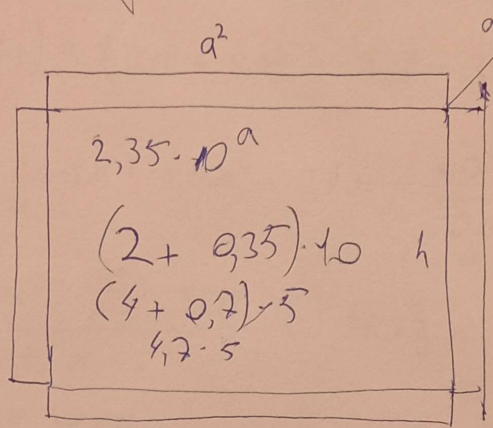 a²
a
2,35 · 10^a
(2 + 0,35) · 10
h
(4 + 0,7) · 5
4,7 · 5